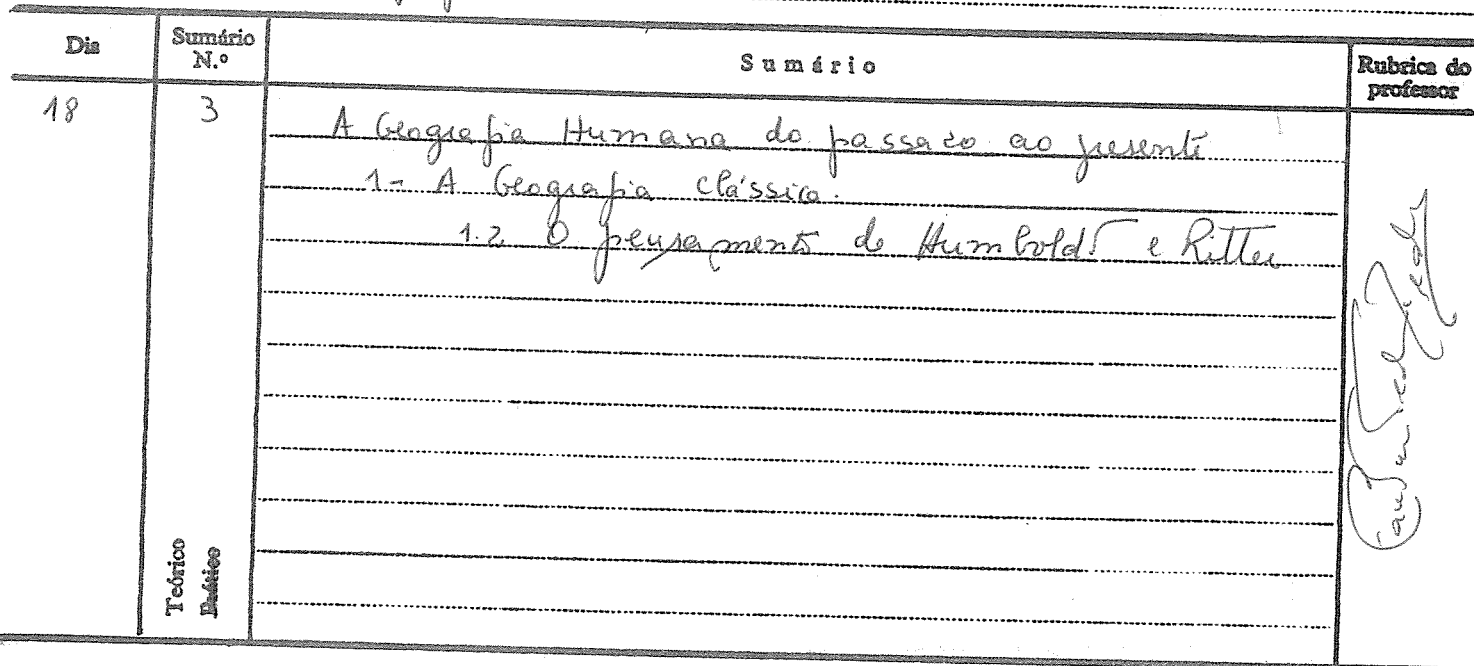 Dia Sumário N.º Sumário Rubrica do professor
18 3 A Geografia Humana do passado ao presente
1- A Geografia clássica.
1.2 O pensamento de Humboldt e Ritter
Teórico
Prático